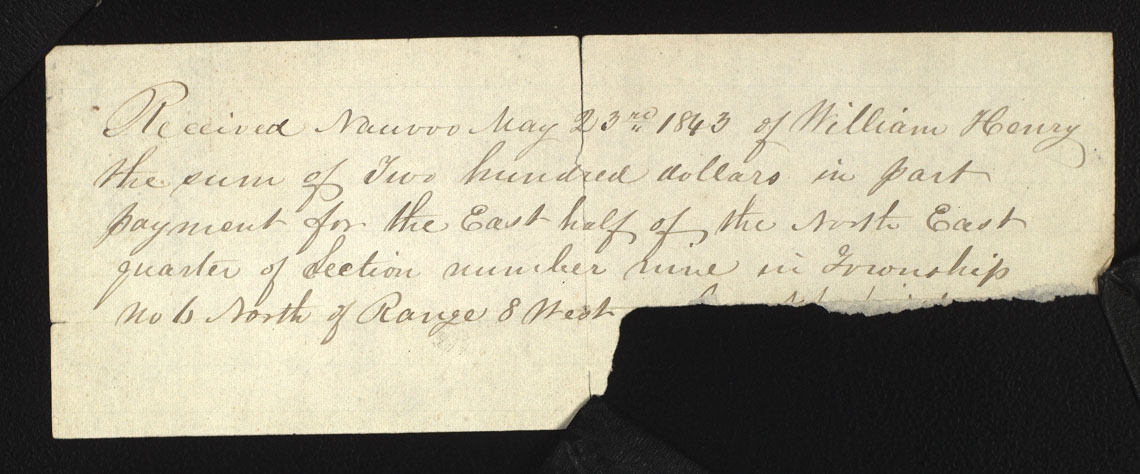 Received Nauvoo May 23rd 1843 of William Henry
the sum of Two hundred dollars in part
payment for the East half of the North East
quarter of Section number nine in Township
No 6 North of Range 8 West